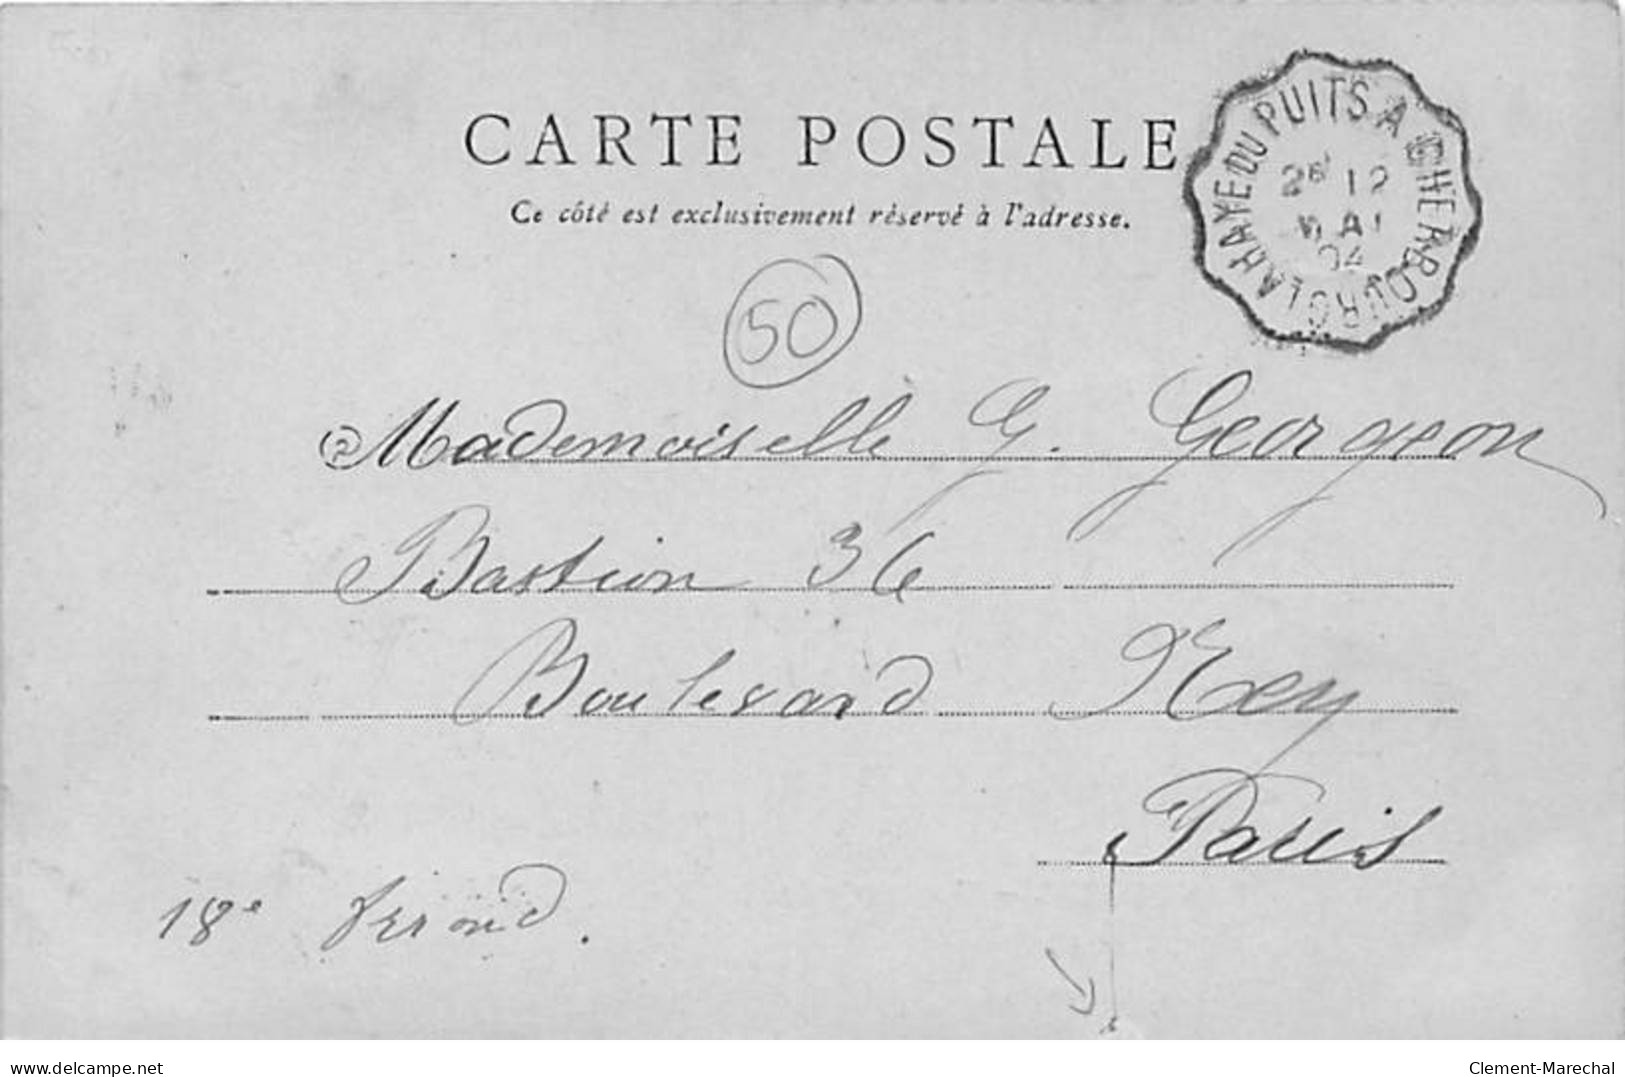 CARTE POSTALE
Ce côté est exclusivement réservé à l'adresse.
LA HAYE DU PUITS A CHERBOURG
2e 12
MAI
04
50
Mademoiselle G. Georgeon
Bastion 36
Boulevard Ney
Paris
18e
delcampe.net
Clement-Marechal